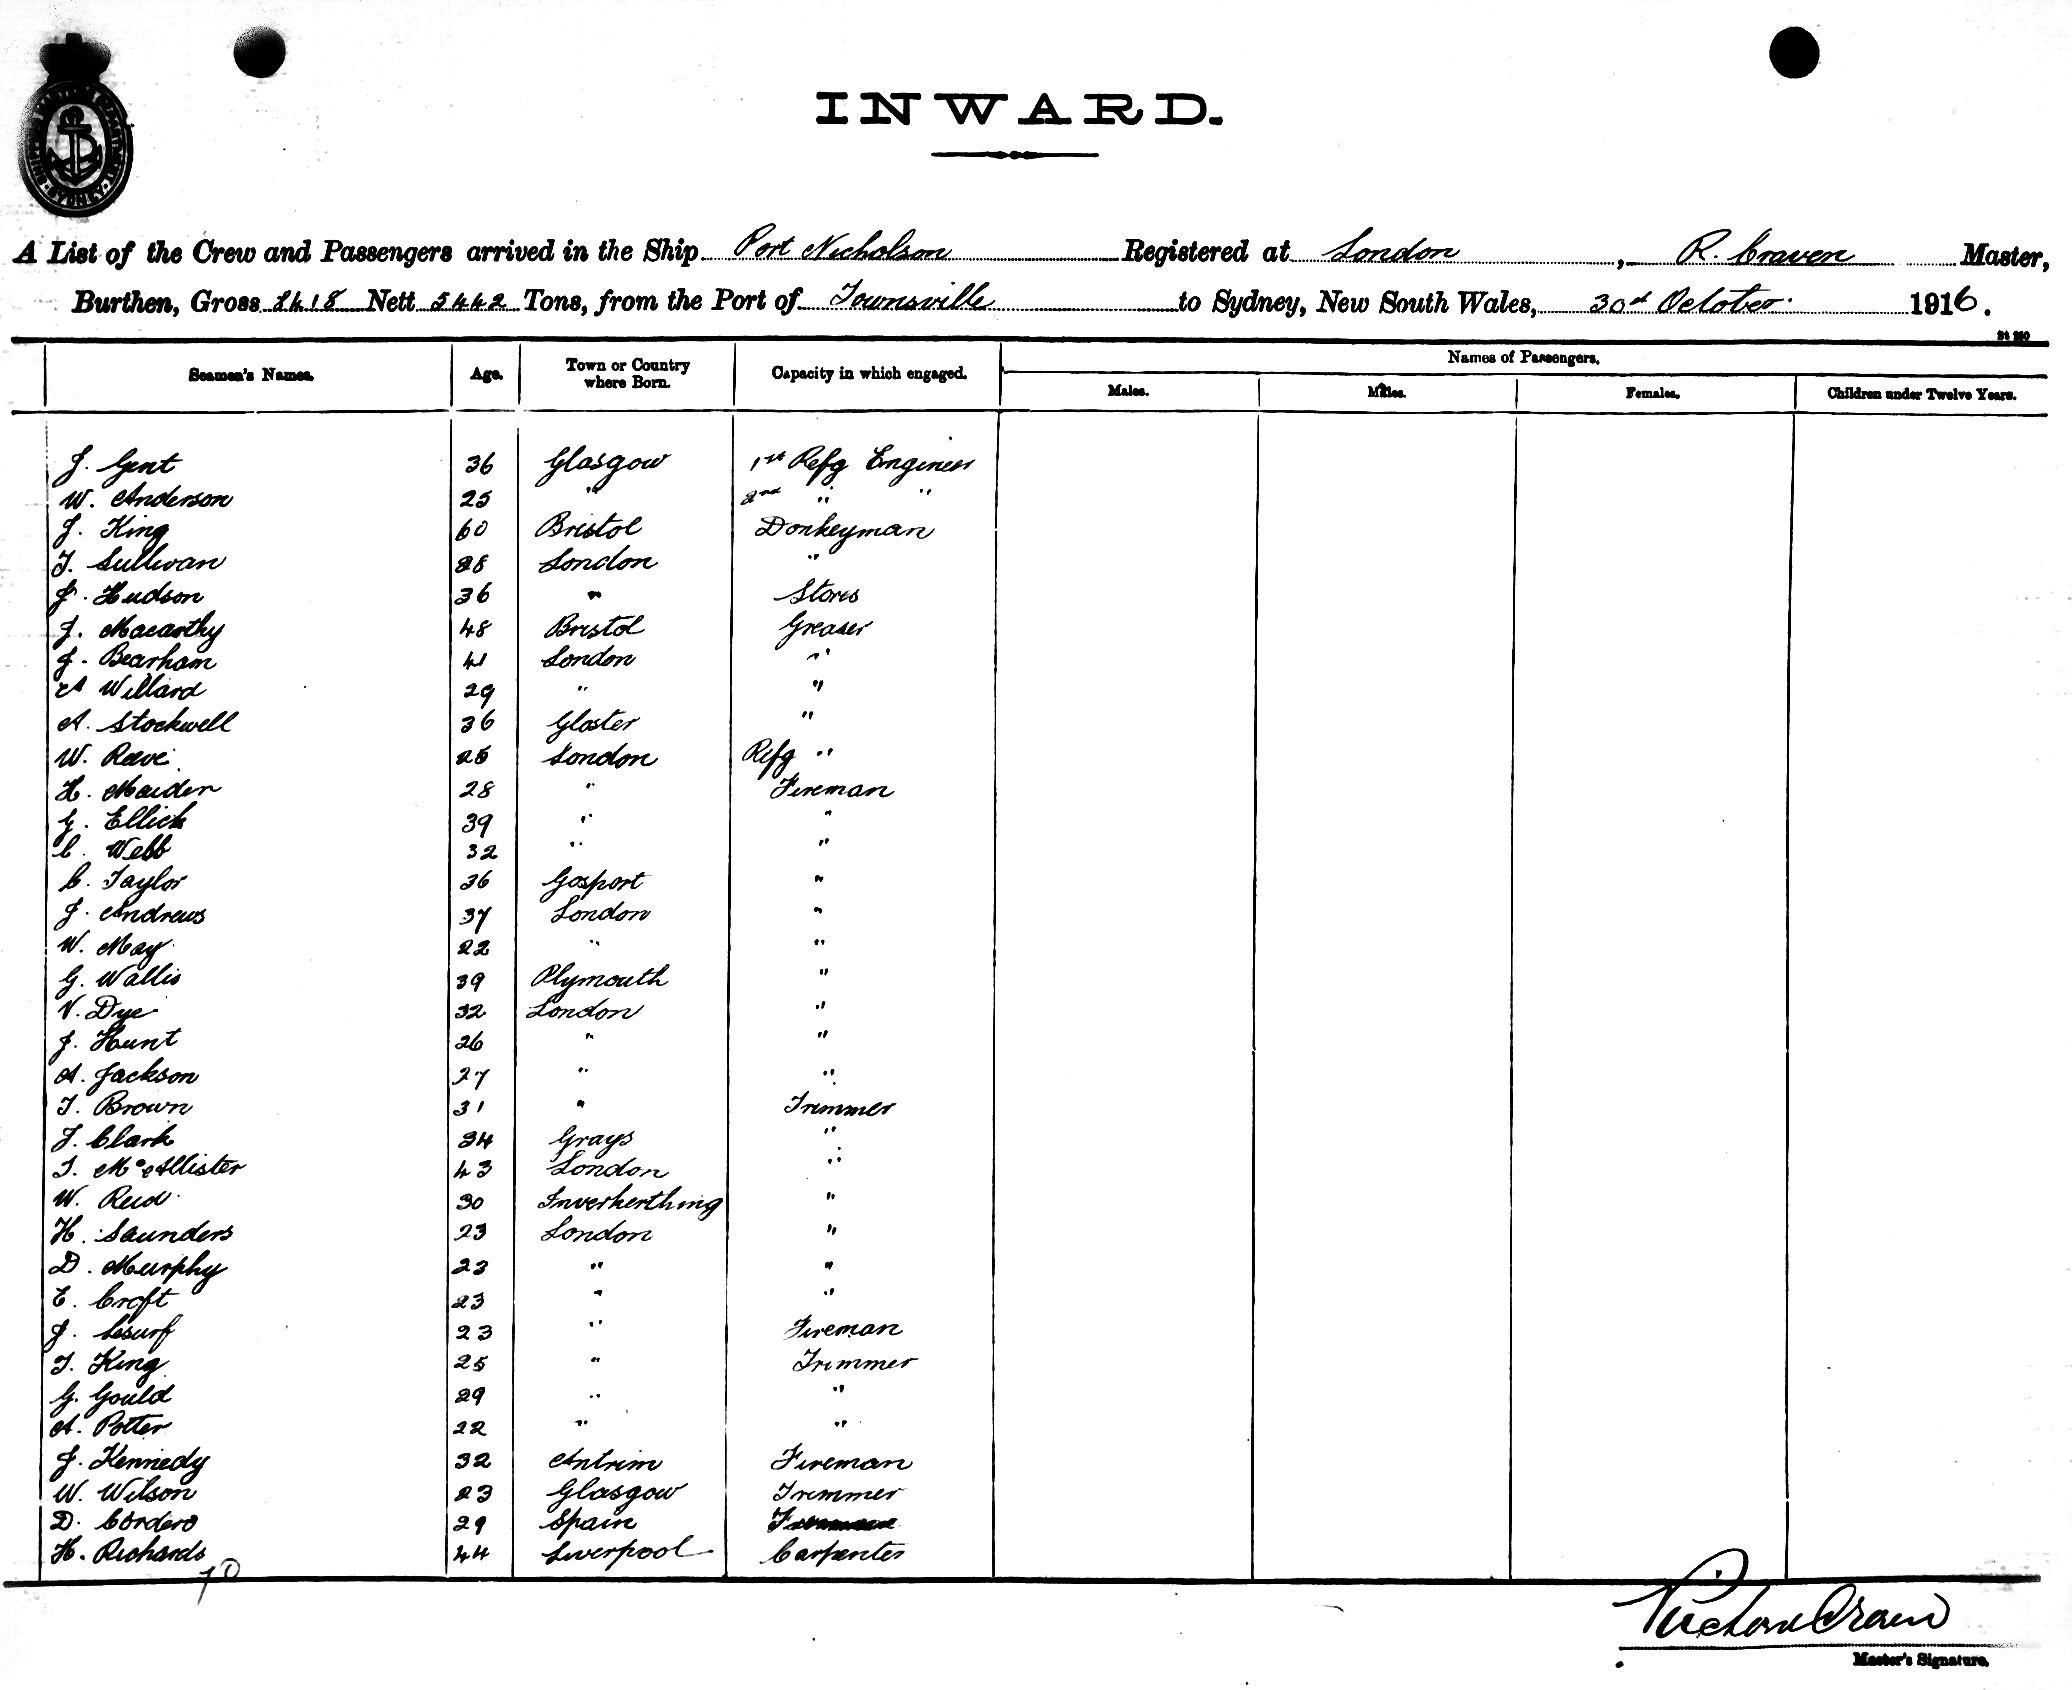 SHIPPING MASTERS DEPARTMENT. SYDNEY.
INWARD.
A List of the Crew and Passengers arrived in the Ship Port Nicholson Registered at London, R. Craven Master,
Burthen, Gross 8418 Nett 5442 Tons, from the Port of Townsville to Sydney, New South Wales, 30th October 1916.
Names of Passengers.
Seamen's Names. Age. Town or Country where Born. Capacity in which engaged. Males. Males. Females. Children under Twelve Years.
J. Gent 36 Glasgow 1st Refg Engineer
W. Anderson 25 " 2nd " "
J. King 60 Bristol Donkeyman
T. Sullivan 28 London "
J. Hudson 36 " Stores
J. Macarthy 48 Bristol Greaser
J. Bearham 41 London "
A Willard 29 " "
A. Stockwell 36 Gloster "
W. Reeve 26 London Refg "
H. Maider 28 " Fireman
G. Ellick 39 " "
C. Webb 32 " "
C. Taylor 36 Gosport "
J. Andrews 37 London "
W. May 22 " "
G. Wallis 39 Plymouth "
V. Dye 32 London "
J. Hunt 26 " "
A. Jackson 27 " "
T. Brown 31 " Trimmer
J. Clark 34 Grays "
T. McAllister 43 London "
W. Reid 30 Inverkerthing "
H. Saunders 23 London "
D. Murphy 23 " "
E. Croft 23 " "
J. Lesurf 23 " Fireman
T. King 25 " Trimmer
G. Gould 29 " "
A. Potter 22 " "
J. Kennedy 32 Antrim Fireman
W. Wilson 23 Glasgow Trimmer
D. Cordero 29 Spain
H. Richards 44 Liverpool Carpenter
70
Richard Craven
Master's Signature.